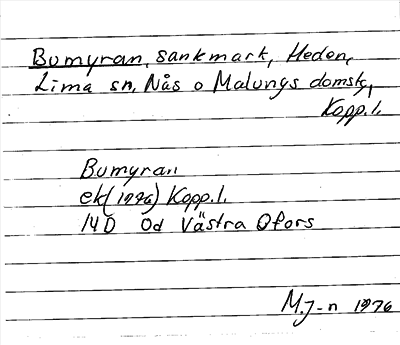 Bumyran, sankmark, Heden,
Lima sn, Nås o Malungs domsk,
Kopp.l.
Bumyran
ek(1972) Kopp.l.
14D 0d Västra Ofors
M.J-n 1976